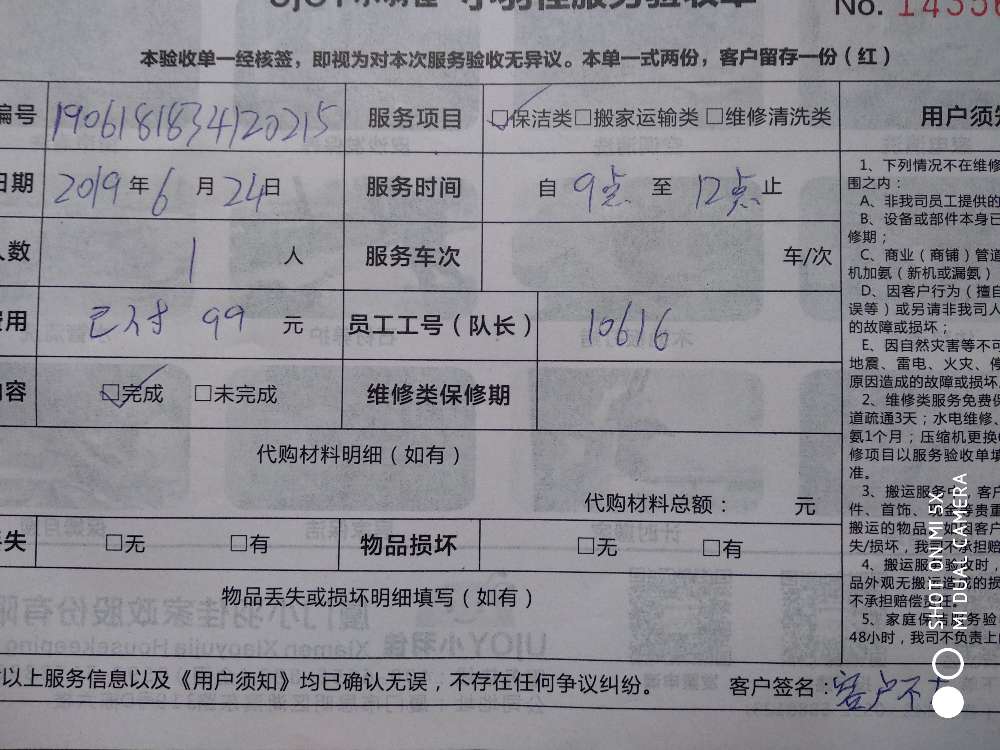 No. 14356
本验收单一经核签，即视为对本次服务验收无异议。本单一式两份，客户留存一份（红）
编号 1906181834120215 服务项目 ☑保洁类□搬家运输类 □维修清洗类
日期 2019年6月24日 服务时间 自 9点 至 12点止
人数 1 人 服务车次 车/次
费用 已付 99 元 员工工号（队长） 10616
内容 ☑完成 □未完成 维修类保修期
代购材料明细（如有）
代购材料总额： 元
丢失 □无 □有 物品损坏 □无 □有
物品丢失或损坏明细填写（如有）
以上服务信息以及《用户须知》均已确认无误，不存在任何争议纠纷。 客户签名：客户不
用户须知
1、下列情况不在维修
围之内：
A、非我司员工提供的
B、设备或部件本身已
修期；
C、商业（商铺）管道
机加氨（新机或漏氨）
D、因客户行为（擅自
误等）或另请非我司人
的故障或损坏；
E、因自然灾害等不可
地震、雷电、火灾、停
原因造成的故障或损坏
2、维修类服务免费保
道疏通3天；水电维修、
氨1个月；压缩机更换
修项目以服务验收单填
准。
3、搬运服务中，客户
件、首饰、现金等贵重
搬运的物品，如因客户
失/损坏，我司不承担赔
4、搬运服务验收时，
品外观无搬运造成的损
不承担赔偿责任。
5、家庭保洁服务验
48小时，我司不负责上
SHOT ON MI 5X
MI DUAL CAMERA